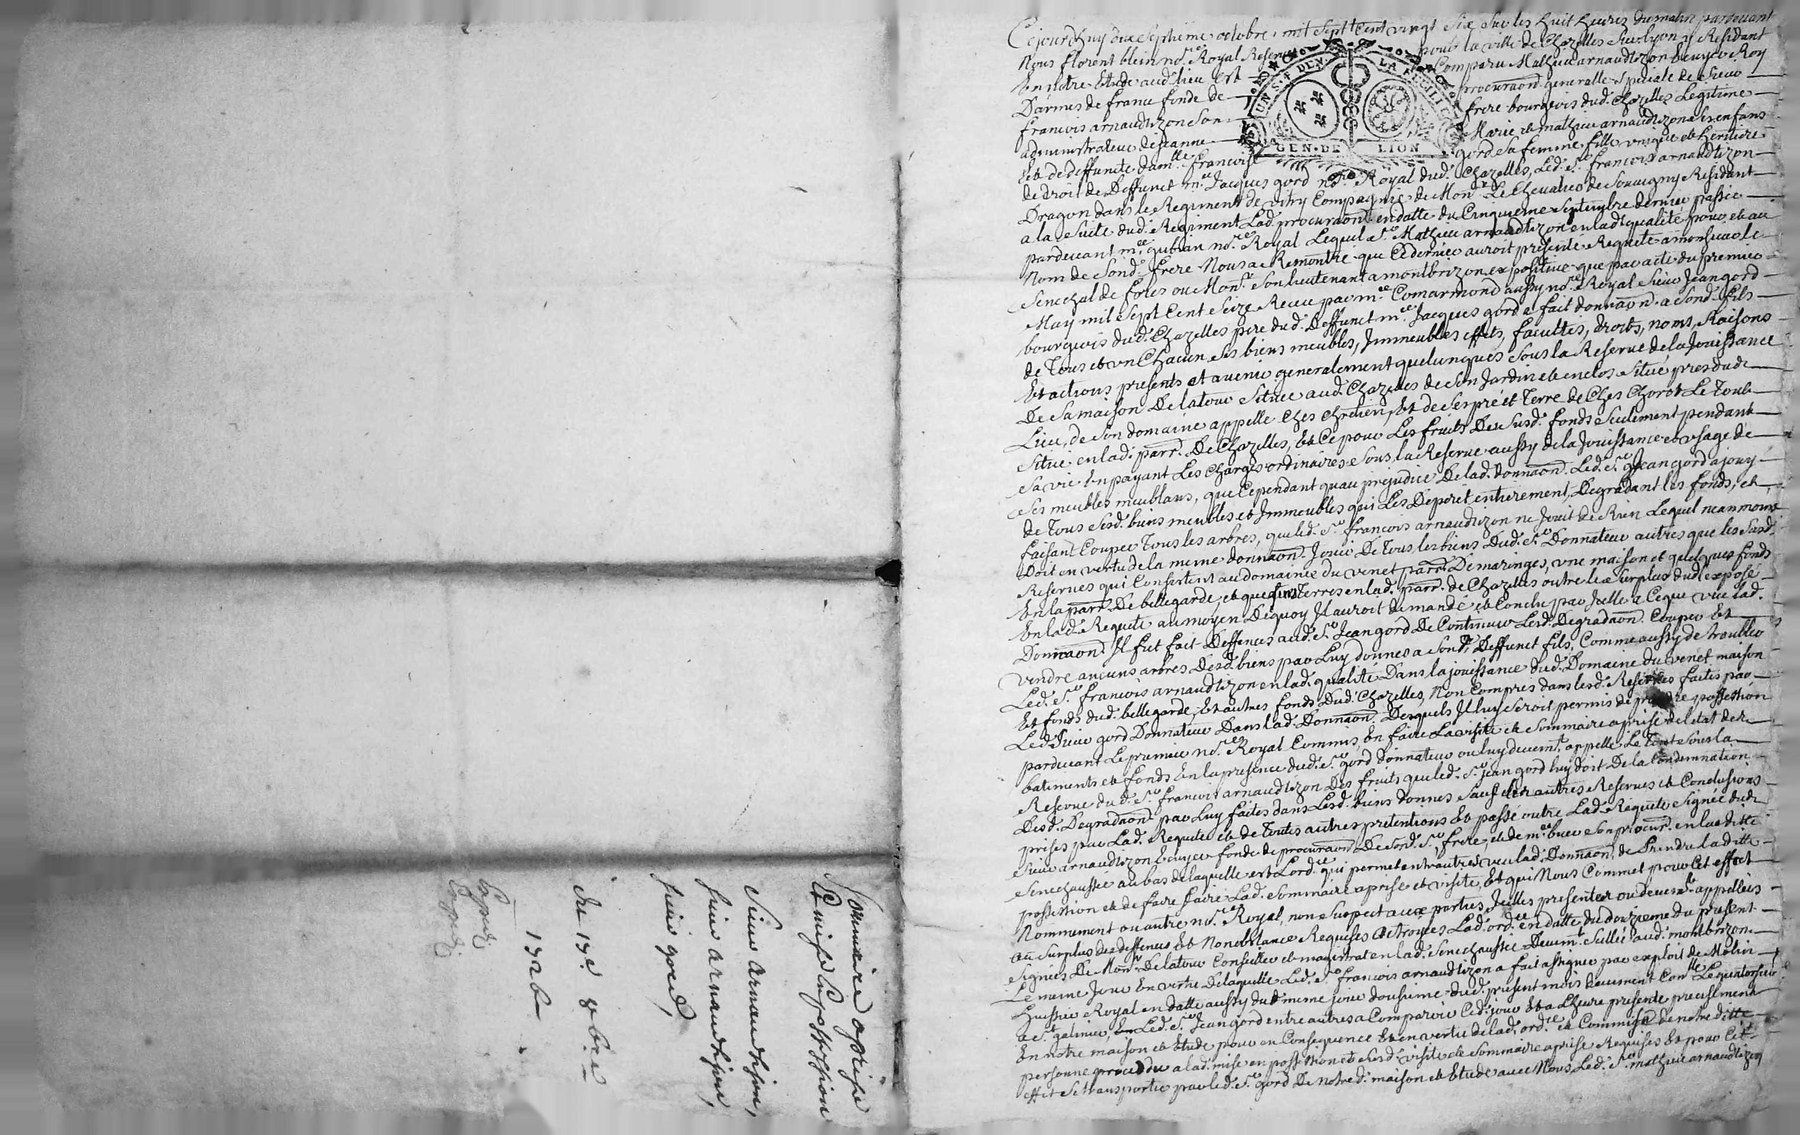 Sommaire aprise
Et mise En possession
Sieur arnaudtizon,
sieur arnaudtizon,
sieur gord,
du 17e 8bre
1726
Expedié
Cejourdhuy dix septieme octobre mil Sept Cent vingt Six Sur les huit heures du matin pardevant
Nous florent blein nore Royal Reservé pour la ville de Chazelles Sur lyon y Residant
En notre Etude audt lieu Est Comparu Mathieu arnaudtizon Ecuyer Roy
Darmes de france fondé de procuraon generalle Speciale de Sieur
francois arnaudtizon Son frere bourgeois dudt Chazelles Legitime
administrateur de Jeanne Marie et mathieu arnaudtizon ses enfans
Et de deffuncte damlle francoise gord sa femme fille unique et heritiere
de droit de Deffunct Me Jacques gord nore Royal dudt Chazelles, Ledt Sr francois arnaudtizon
Dragon dans le Regiment de vitry Compagnie de Monsr Le Chevalier de Souvigny Residant
a la Suite dudt Regiment Ladt procuraon en datte du Cinquieme Septembre dernier passée
pardevant me nore Royal Lequel Sr Mathieu arnaudtizon en ladt qualité pour et au
Nom de Sondt frere Nous a Remontré que Ce dernier auroit presenté Requete a monsieur le
Senechal de forés ou Monsr Son lieutenant a montbrizon expositive que par acte du premier
May mil Sept Cent Seize Receu par me Comarmond aussy nore Royal Sieur Jean gord
bourgeois dudt Chazelles pere dudt Deffunct me Jacques gord a fait donnaon a Sondt fils
de Tous et un Chacun Ses biens meubles, Immeubles effets, facultes, droits, noms, Raisons
Et actions presents et avenir generalement quelconques Sous la Reserve de la Jouissance
De Sa maison De latour Située audt Chazelles de Son Jardin et enclos Situé pres dudt
Lieu, de Son domaine appellé Ches Chretien, Et de Ser pré et Terre de Ches Chorot Le Tout
Situé en ladt parr. De Chazelles, Et Ce pour Les fruits Des Susdt fonds Seulement pendant
Sa vie En payant Les Charges ordinaires Sous la Reserve aussy de la Jouissance et usage de
Ses meubles meublans, que Cependant quau prejudice De ladt donnaon Ledt Sr Jean gord a jouy
de Tous Sesdt biens meubles et Immeubles quil Les Deperit entierement, Degradant les fonds, et
faisant Couper Tous les arbres, que ledt Sr francois arnaudtizon ne Jouit de Rien Lequel neanmoins
Doit en vertu de la meme donnaon Jouir De Tous les biens Dudt Sr Donnateur autres que les Susdt
Reserves qui Consistent au domaine du venet parr. De maringes, une maison et quelques fonds
En la parr. De bellegarde, et quelques Terres en ladt parr. de Chazelles outre le Surplus dudt exposé
En ladt Requete au moyen Dequoy Il auroit demandé et Conclu par Icelle a Ceque vue lad
Donnaon Il fut fait Deffences audt Sr Jean gord De Continuer Lesdt Degradaon Couper Et
vendre aucuns arbres Desdt biens par Luy donnes a Sondt Deffunct fils, Comme aussy de troubler
Ledt Sr francois arnaudtizon en ladt qualité Dans la jouissance dudt Domaine du venet maison
Et fonds dudt bellegarde, Et autres fonds Dudt Chazelles, Non Compris dans lesdt Reserves faites par
Ledt Sieur gord Donnateur Dans ladt Donnaon, Desquels Il luy Seroit permis de prendre possession
pardevant Le premier nore Royal Commis En faire La visite et Sommaire aprise de lestat des
batiments et fonds En la presence dudt Sr gord donnateur ou luy deuemt appellé Le Tout Sous la
Reserve dudt Sr francois arnaudtizon Des fruits que ledt Sr Jean gord luy doit De la Condemnation
Desdt Degradaon par Luy faites dans Lesdt biens donnes Sauf Et autres Reserves et Conclusions
prises par Ladt Requete et de Toutes autres pretentions Et passé outre Ladt Requete Signée dudt
Sieur arnaudtizon Ecuyer fondé de procuraon De Sondt Sr frere et de me buer Son procur. en laditte
Senechaussée au bas de laquelle est Lordce qui permet entr autres veu ladt Donnaon, de Prendre laditte
possession et de faire faire Ladt Sommaire aprise et visite, Et qui Nous Commet pour Cet effect
Nommement ou autre nore Royal, non Suspect aux parties Icelles presentes ou deuemt appellées
au Surplus des deffences Et Nonobstance Requises octroyes Ladt ordce en datte du douzieme du present
Signée De Monsr Delatour Conseiller et magistrat en ladt Senechaussée Deuemt Sellée audt montbrizon
Le meme Jour En vertu De laquelle Ledt Sr francois arnaudtizon a fait assigner par exploit de Molin
huissier Royal en datte aussy du meme jour douzieme dudt present mois Deuement Conlle Le quatorzieme
a St galmier, Ledt Sr Jean gord entre autres a Comparoir Cedt jour Et a Lheure presente precisement
En notre maison et Etude pour en Consequence Et en vertu de ladt ordce et Commission de notre ditte
personne procedder a ladt mise en possession et Susdt visite et Sommaire aprise Requises Et pour Cet
effet Se transporter par ledt Sr gord De notredt maison et Etude avec Nous, Ledt Sr mathieu arnaudtizon
GEN. DE LION